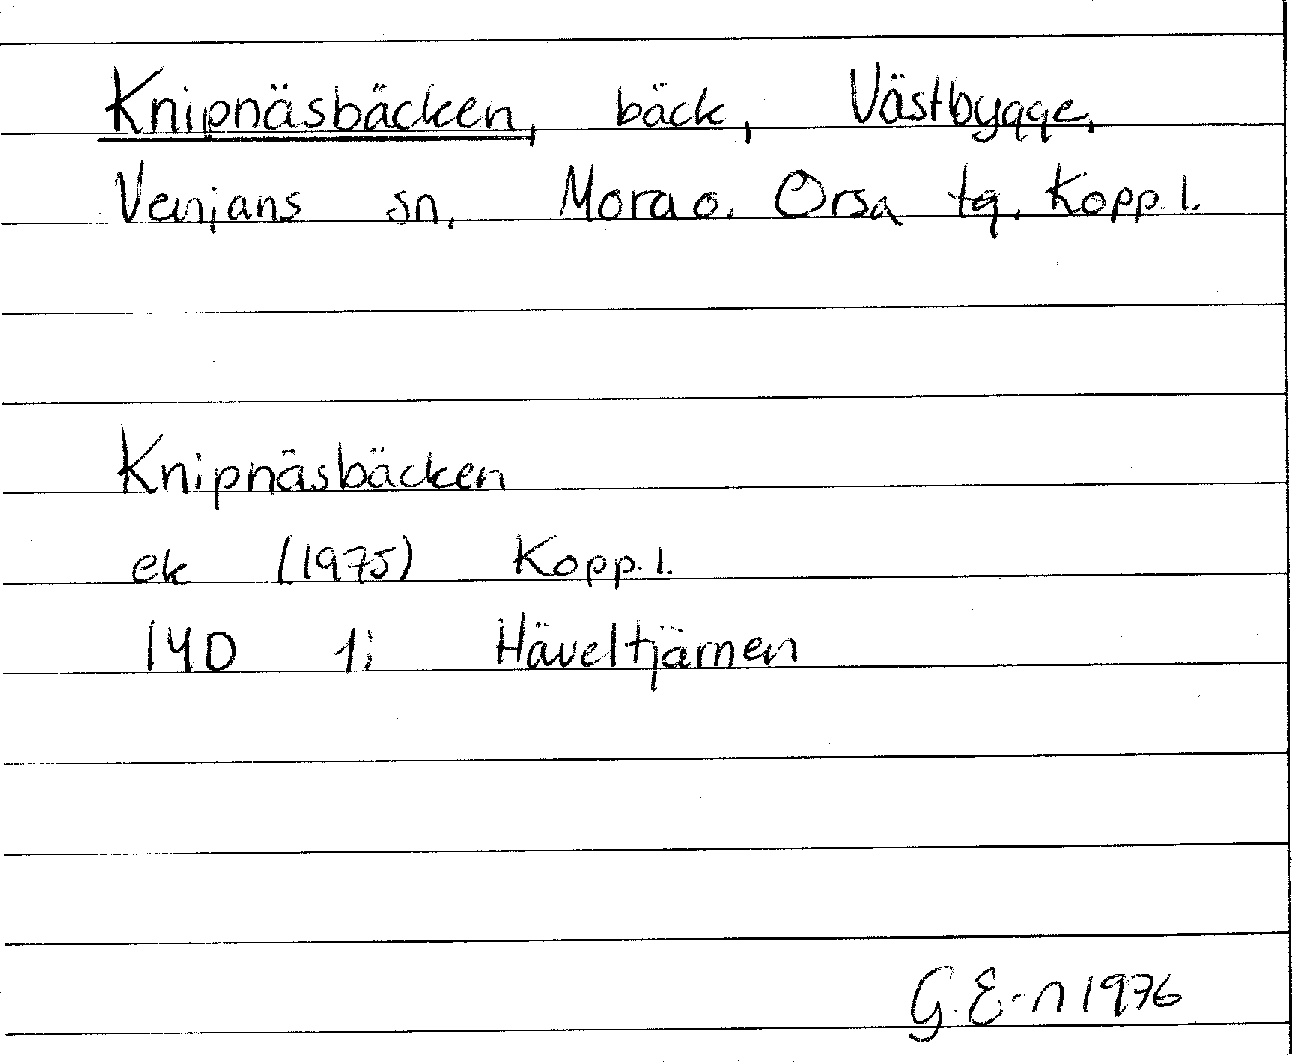 Knipnäsbäcken, bäck, Västbygge,
Venjans sn, Mora o. Orsa tg, Kopp. l.
Knipnäsbäcken
ek (1975) Kopp. l.
14D 1i Häveltjärnen
G. E-n 1976